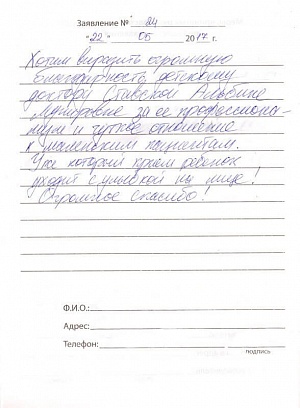 Заявление № 24
"22" 05 2017 г.
Хотим выразить огромную
благодарность детскому
доктору Ставской Альбине
Мунировне за ее профессиона-
лизм и чуткое отношение
к маленьким пациентам.
Уже который прием ребенок
уходит с улыбкой на лице!
Огромное спасибо!
Ф.И.О.:
Адрес:
Телефон:
подпись